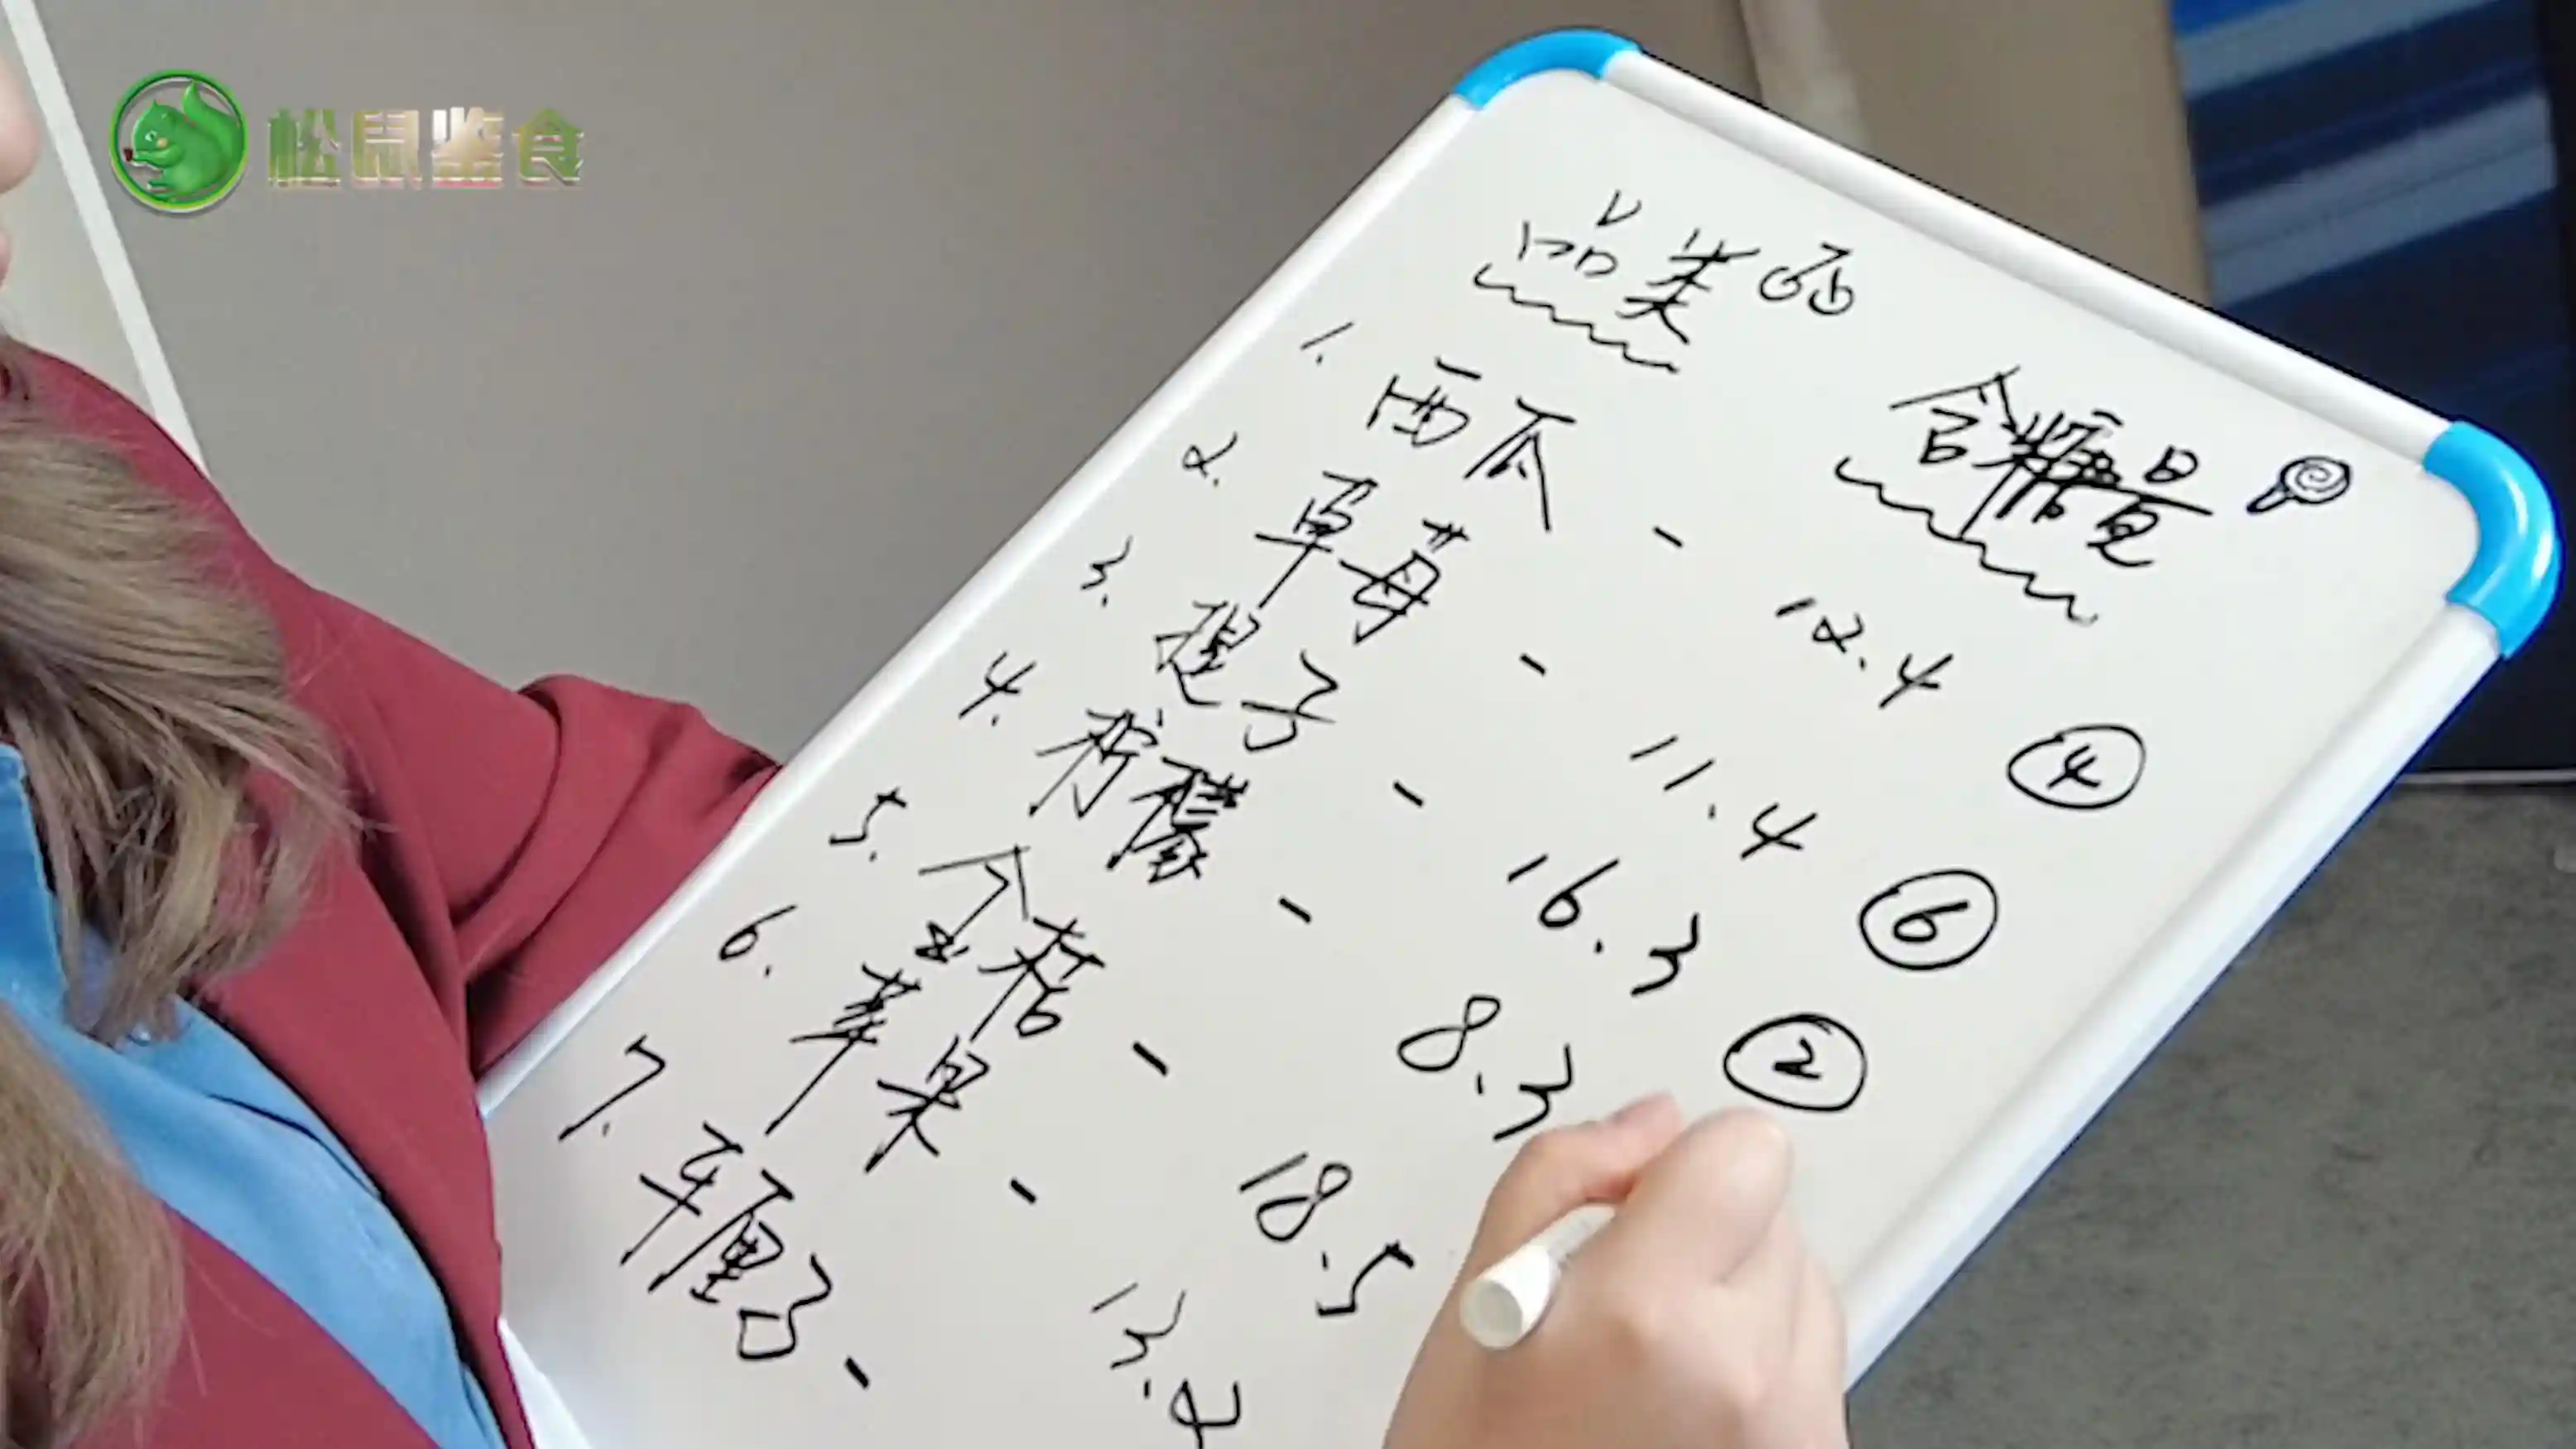 松鼠鉴食
品类
含糖量
1. 西瓜 - 12.4 ④
2. 草莓 - 11.4 ⑥
3. 提子 - 16.3 ②
4. 柠檬 - 8.3
5. 金桔 - 18.5
6. 苹果 - 13.4
7. 车厘子 -